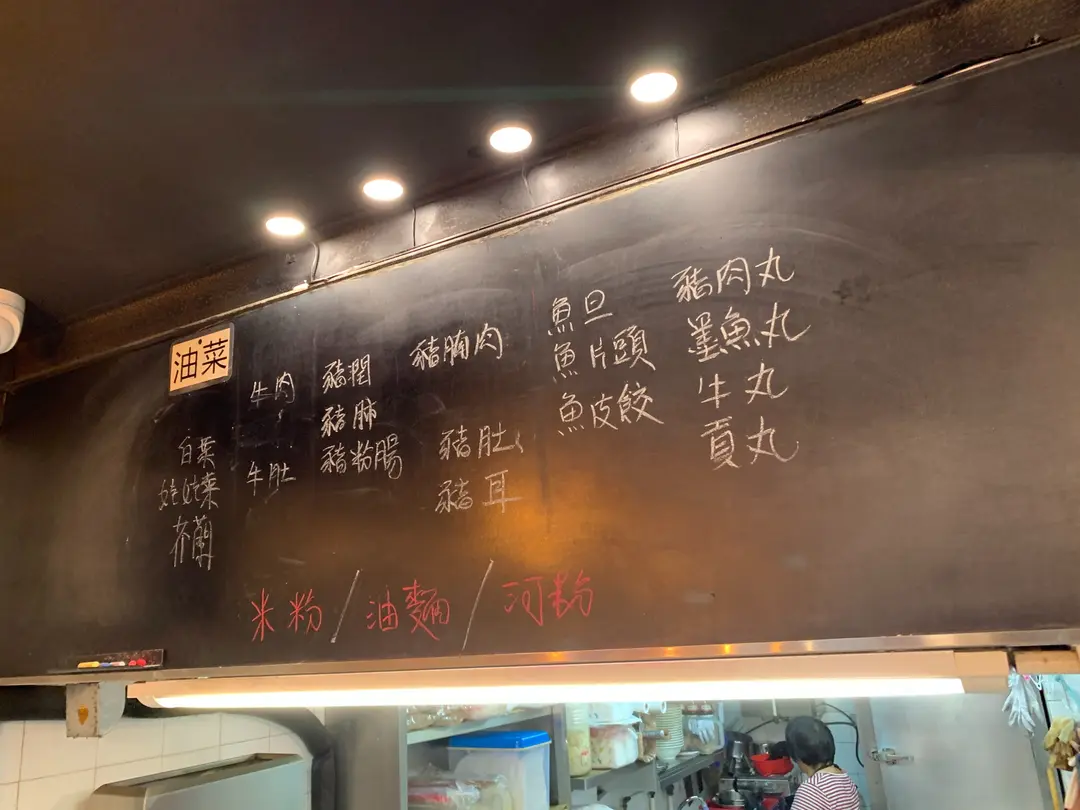 油菜
白菜
娃娃菜
芥蘭
牛肉
牛肚
豬潤
豬肺
豬粉腸
豬腩肉
豬肚
豬耳
魚旦
魚片頭
魚皮餃
豬肉丸
墨魚丸
牛丸
貢丸
米粉/油麵/河粉